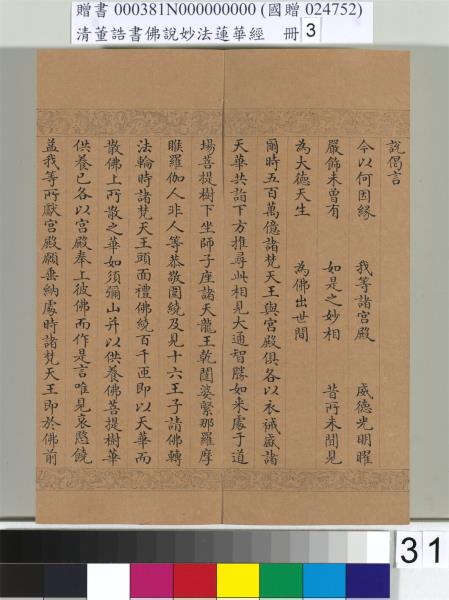 贈書 000381N000000000 (國贈 024752)
清董誥書佛說妙法蓮華經 冊 3
說偈言
今以何因緣 我等諸宮殿 威德光明曜
嚴飾未曾有 如是之妙相 昔所未聞見
為大德天生 為佛出世間
爾時五百萬億諸梵天王與宮殿俱各以衣祴盛諸
天華共詣下方推尋此相見大通智勝如來處于道
場菩提樹下坐師子座諸天龍王乾闥婆緊那羅摩
睺羅伽人非人等恭敬圍繞及見十六王子請佛轉
法輪時諸梵天王頭面禮佛繞百千匝即以天華而
散佛上所散之華如須彌山并以供養佛菩提樹華
供養已各以宮殿奉上彼佛而作是言唯見哀愍饒
益我等所獻宮殿願垂納處時諸梵天王即於佛前
31